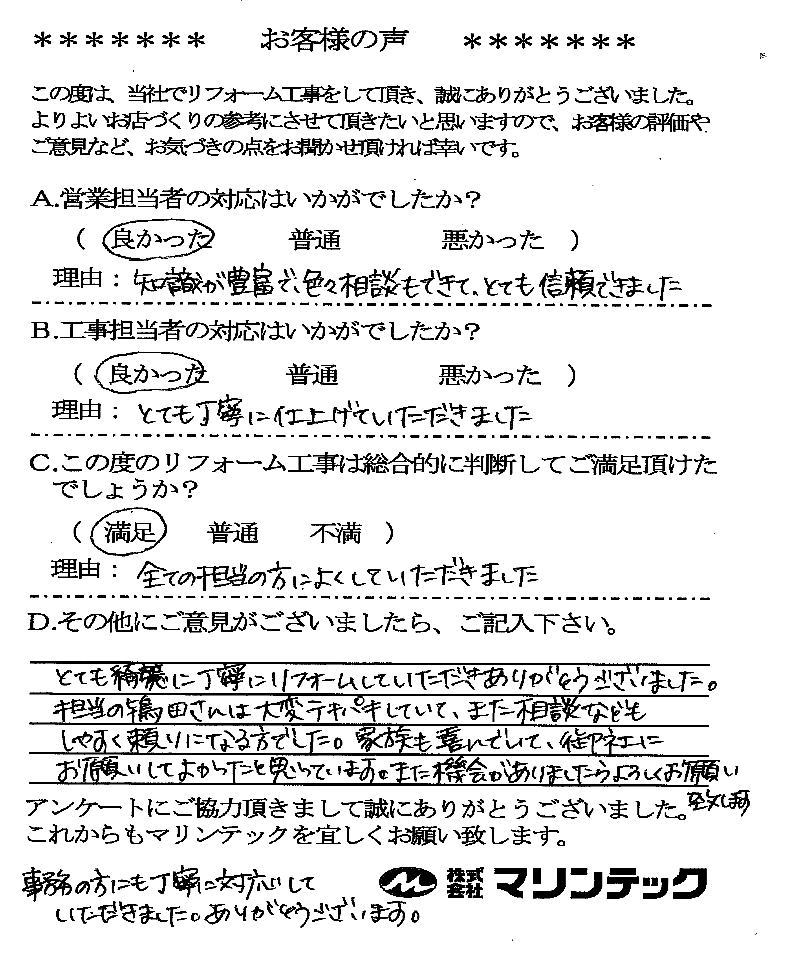 ******* お客様の声 *******
この度は、当社でリフォーム工事をして頂き、誠にありがとうございました。
よりよいお店づくりの参考にさせて頂きたいと思いますので、お客様の評価や
ご意見など、お気づきの点をお聞かせ頂ければ幸いです。
A.営業担当者の対応はいかがでしたか？
（ 良かった 普通 悪かった ）
理由： 知識が豊富で、色々相談もできて、とても信頼できました
B.工事担当者の対応はいかがでしたか？
（ 良かった 普通 悪かった ）
理由： とても丁寧に仕上げていただきました
C.この度のリフォーム工事は総合的に判断してご満足頂けた
でしょうか？
（ 満足 普通 不満 ）
理由： 全ての担当の方によくしていただきました
D.その他にご意見がございましたら、ご記入下さい。
とても綺麗に丁寧にリフォームしていただきありがとうございました。
担当の田さんは大変テキパキしていて、また相談なども
しやすく頼りになる方でした。家族も喜んでいて、御社に
お願いしてよかったと思っています。また機会がありましたらよろしくお願い
致します
アンケートにご協力頂きまして誠にありがとうございました。
これからもマリンテックを宜しくお願い致します。
事務の方にも丁寧に対応して
いただきました。ありがとうございます。
株式会社 マリンテック